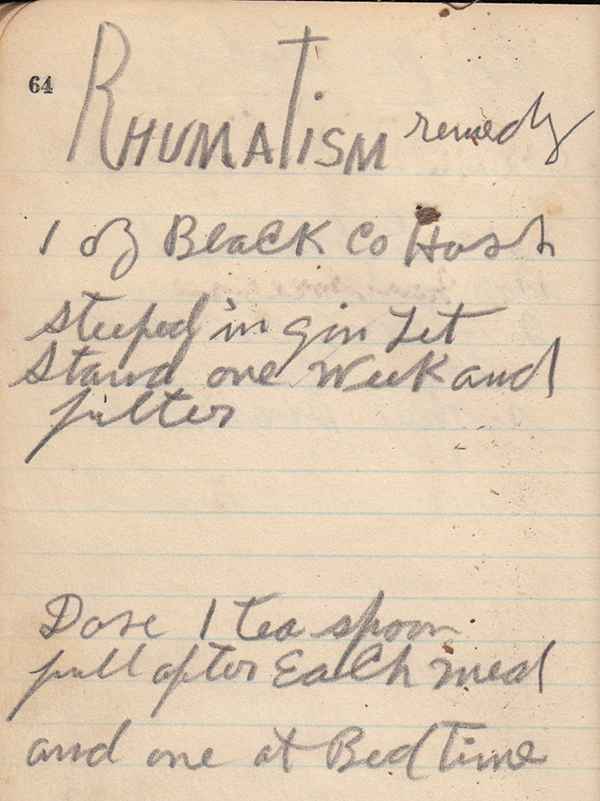 64
RHUMATISM remedy
1 oz Black Co Hosh
steeped in gin Let
Stand one Week and
filter
Dose 1 tea spoon
full after Each meal
and one at Bed Time